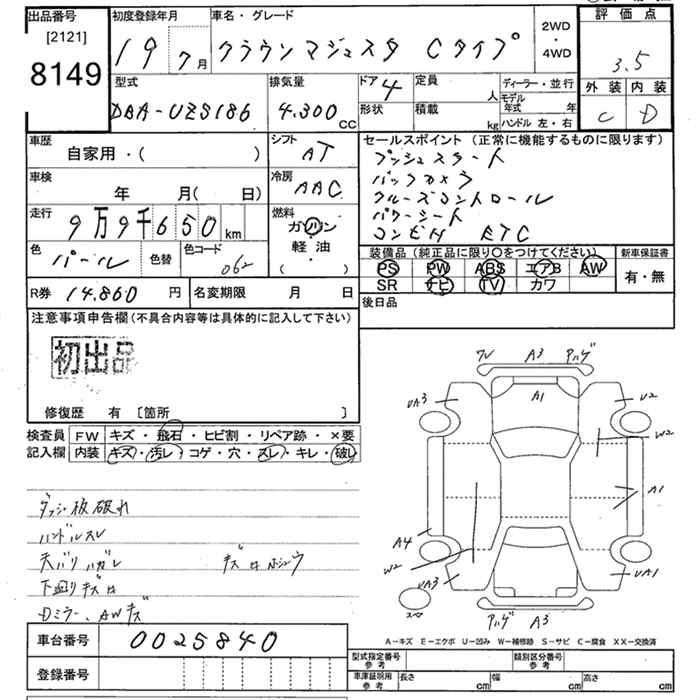 出品番号 初度登録年月 車名・グレード 2WD・4WD 評価点
[2121]
8149
19 7月 クラウンマジェスタ Cタイプ
3.5
型式 排気量 ドア 4 定員 人 ディーラー・並行 外装 内装
DBA-UZS186 4.300cc 形状 積載 kg モデル年式 年 C D
ハンドル 左・右
車歴 シフト セールスポイント(正常に機能するものに限ります)
自家用・( ) AT プッシュスタート
車検 冷房 バックカメラ
年 月( 日) AAC クルーズコントロール
走行 燃料 パワーシート
9万9千650km ガソリン コンビH ETC
軽油
( )
色 パール 色替 色コード 062
装備品(純正品に限り〇をつけてください) 新車保証書
PS PW ABS エアB AW 有・無
SR ナビ TV カワ
R券 14.860円 名変期限 月 日 後日品
注意事項申告欄(不具合内容等は具体的に記入して下さい)
初出品
修復歴 有 [箇所 ]
検査員 FW キズ・飛石・ヒビ割・リペア跡・×要
記入欄 内装 キズ・汚レ・コゲ・穴・スレ・キレ・破レ
ダッシュ板破れ
ハンドルスレ
天バリハガレ
下廻りキズ
Dミラー、AWキズ
A3 ハゲ
UA3 A1 U2
W2
A1
A4
W2
UA3 UA1
ハゲ A3
A-キズ E-エクボ U-凹み W-補修跡 S-サビ C-腐食 XX-交換済
車台番号 0025840
登録番号
型式指定番号 参考 類別区分番号 参考
車庫証明用 参考 長さ cm 幅 cm 高さ cm